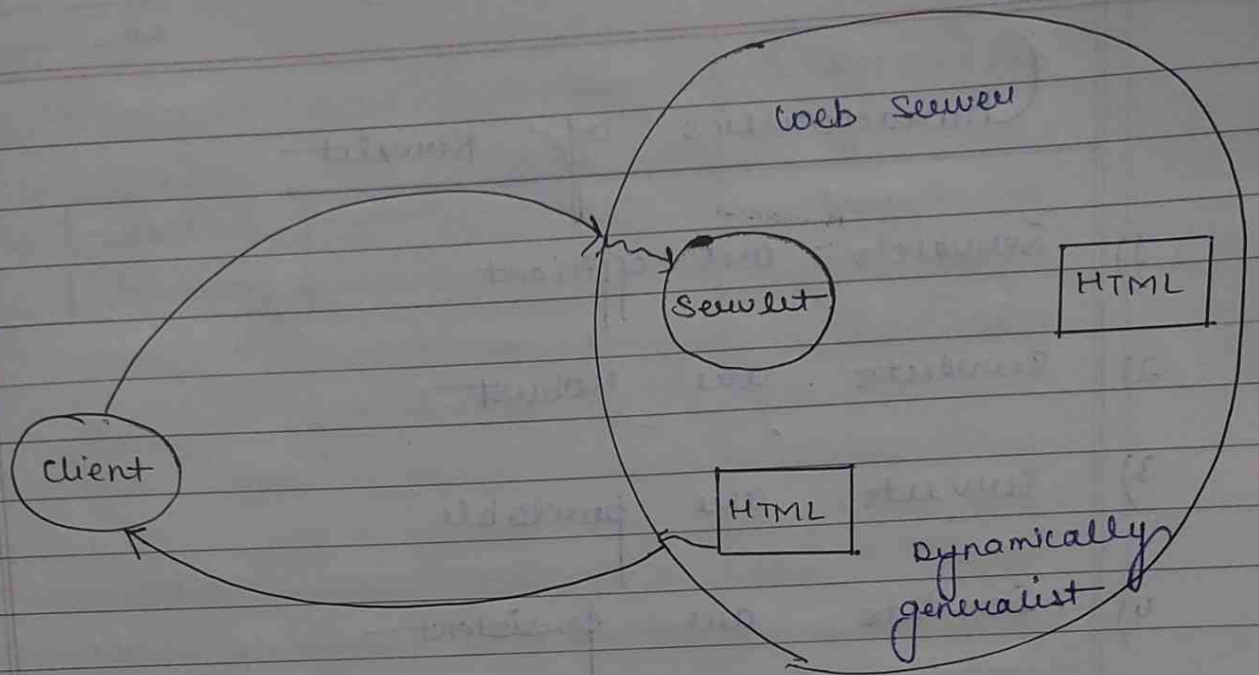 Web Server
Servlet
HTML
Client
HTML
Dynamically
generalist